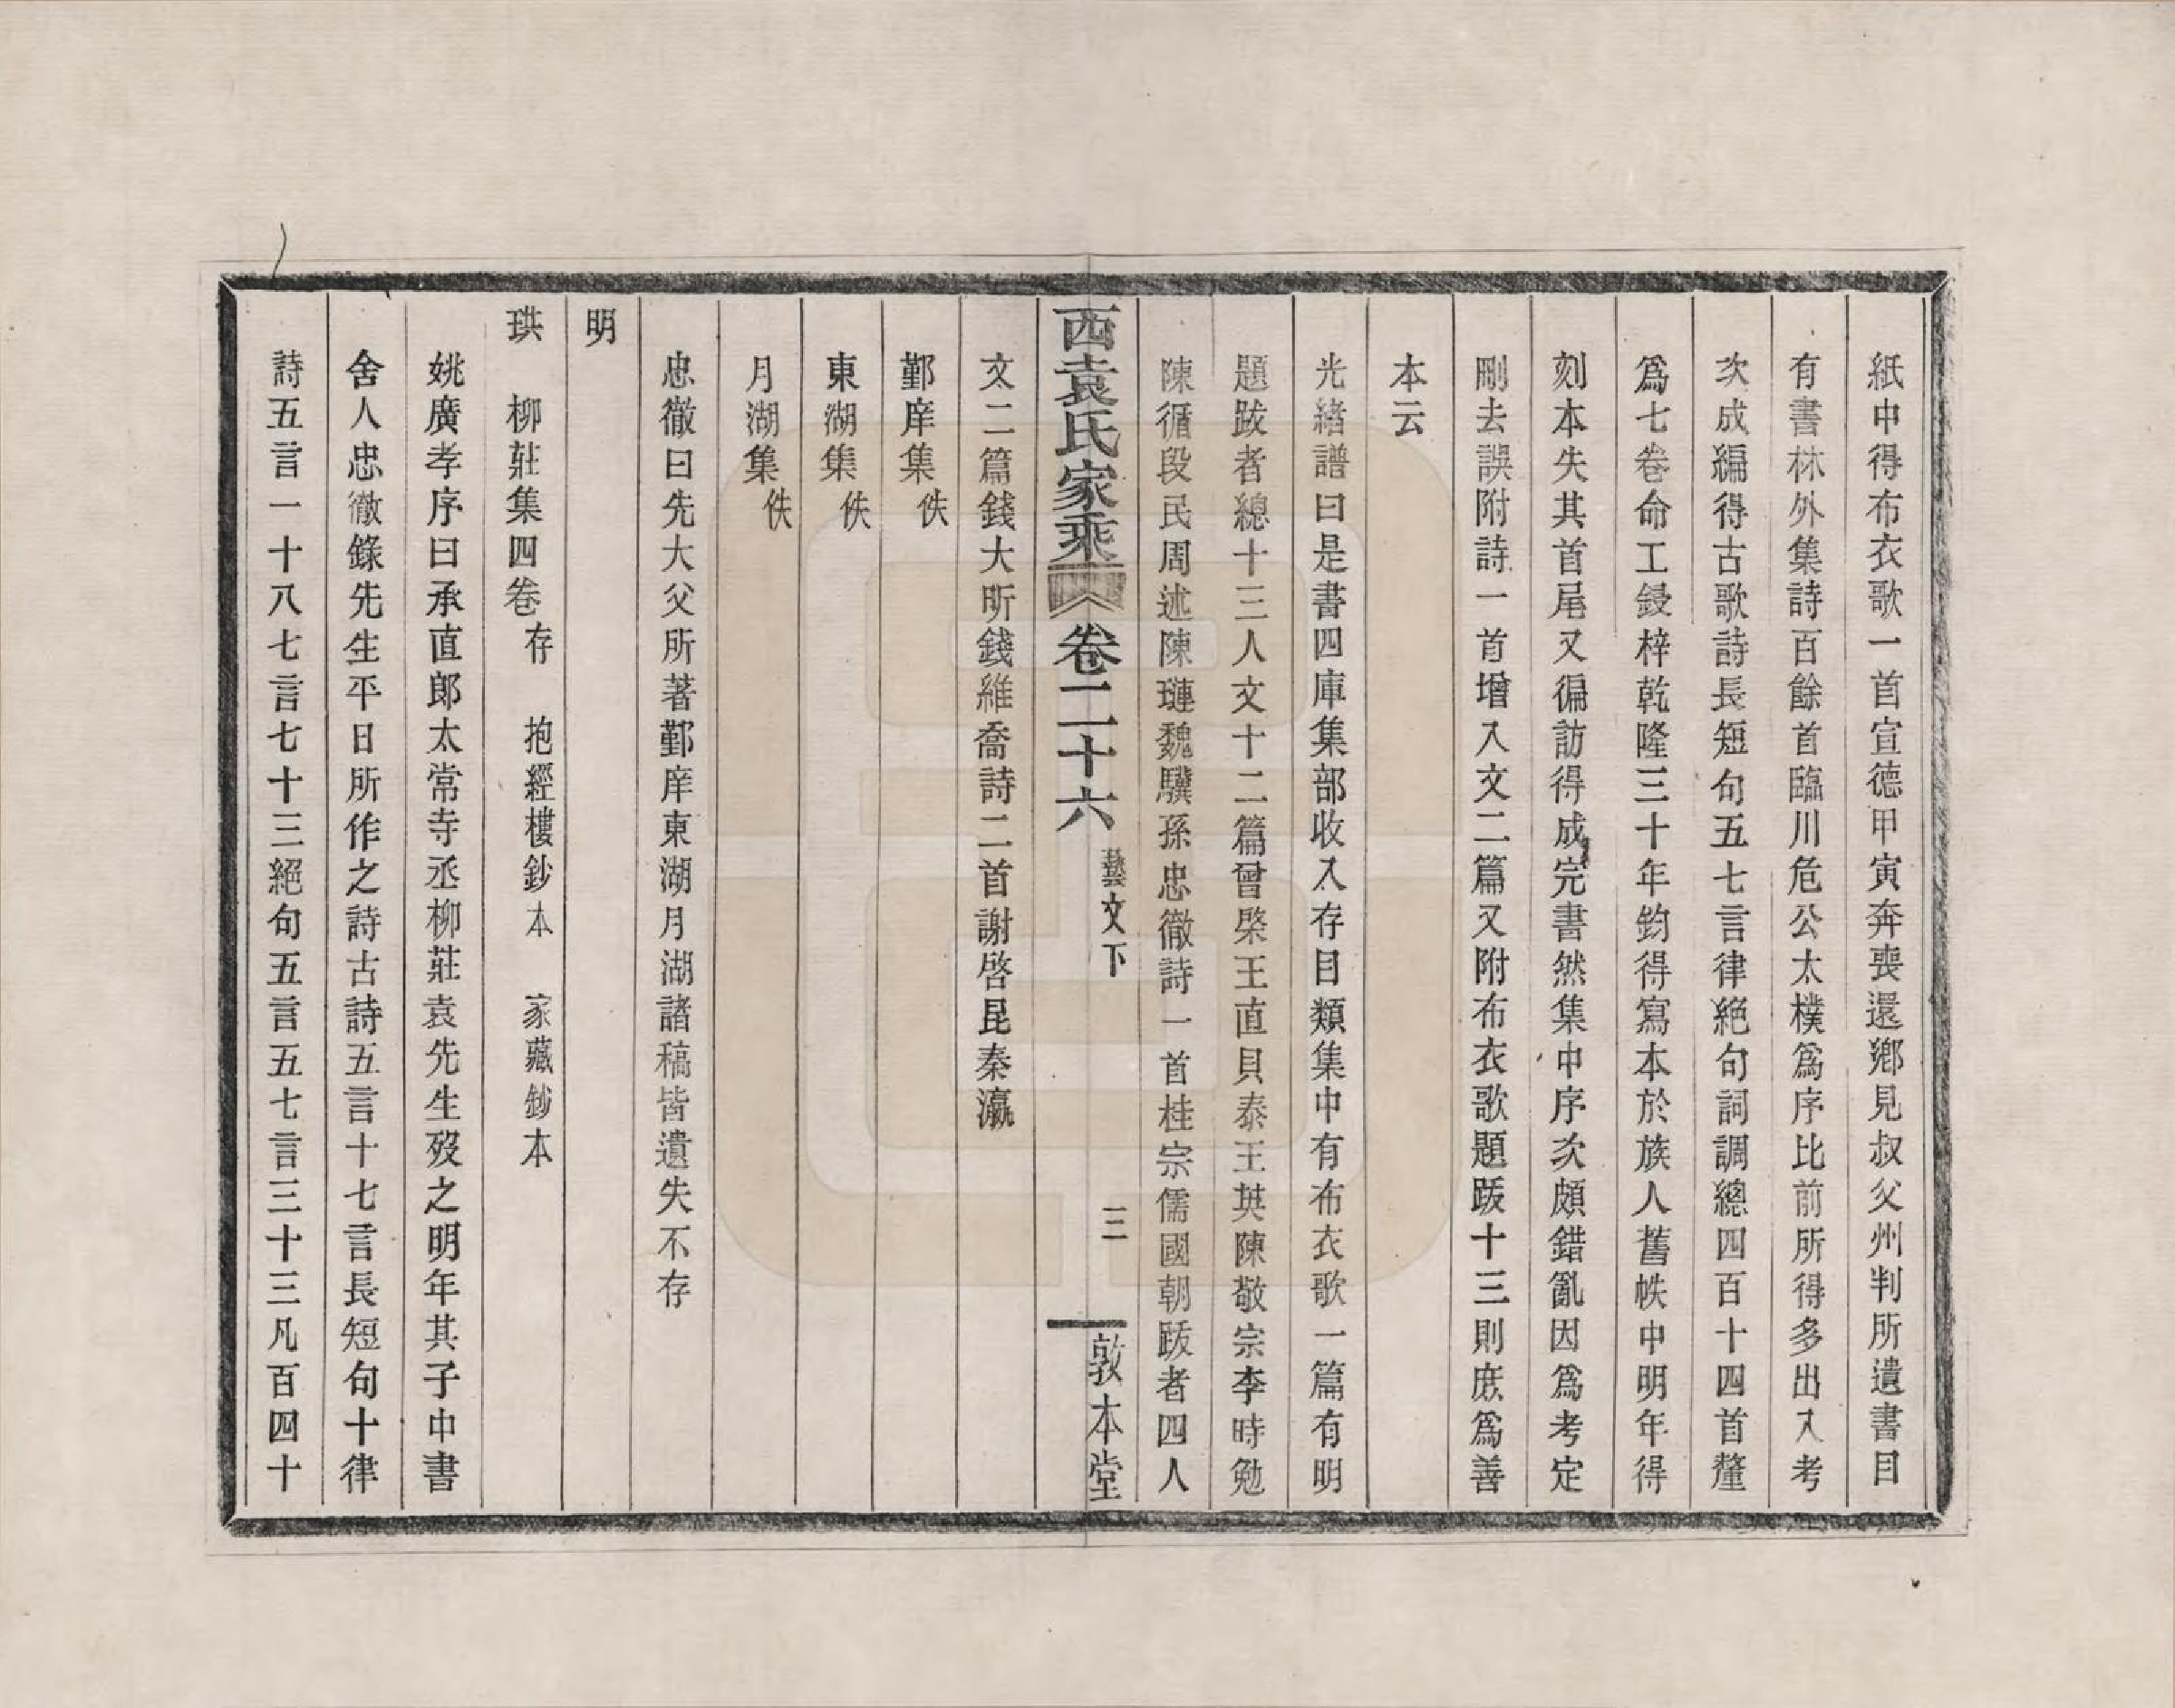 紙中得布衣歌一首宣德甲寅奔喪還鄉見叔父州判所遺書目
有書林外集詩百餘首臨川危公太樸爲序比前所得多出入考
次成編得古歌詩長短句五七言律絕句詞調總四百十四首釐
爲七卷命工鋟梓乾隆三十年鈞得寫本於族人舊帙中明年得
刻本失其首尾又徧訪得成完書然集中序次頗錯亂因爲考定
刪去誤附詩一首增入文二篇又附布衣歌題跋十三則庶爲善
本云
光緒譜曰是書四庫集部收入存目類集中有布衣歌一篇有明
題跋者總十三人文十二篇曾棨王直貝泰王英陳敬宗李時勉
陳循段民周述陳璉魏驥孫忠徹詩一首桂宗儒國朝跋者四人
西袁氏家乘 卷二十六 藝文下 三 敦本堂
文二篇錢大昕錢維喬詩二首謝啓昆秦瀛
鄞庠集 佚
東湖集 佚
月湖集 佚
忠徹曰先大父所著鄞庠東湖月湖諸稿皆遺失不存
明
珙 柳莊集四卷 存 抱經樓鈔本 家藏鈔本
姚廣孝序曰承直郎太常寺丞柳莊袁先生歿之明年其子中書
舍人忠徹錄先生平日所作之詩古詩五言十七言長短句十律
詩五言一十八七言七十三絕句五言五七言三十三凡百四十